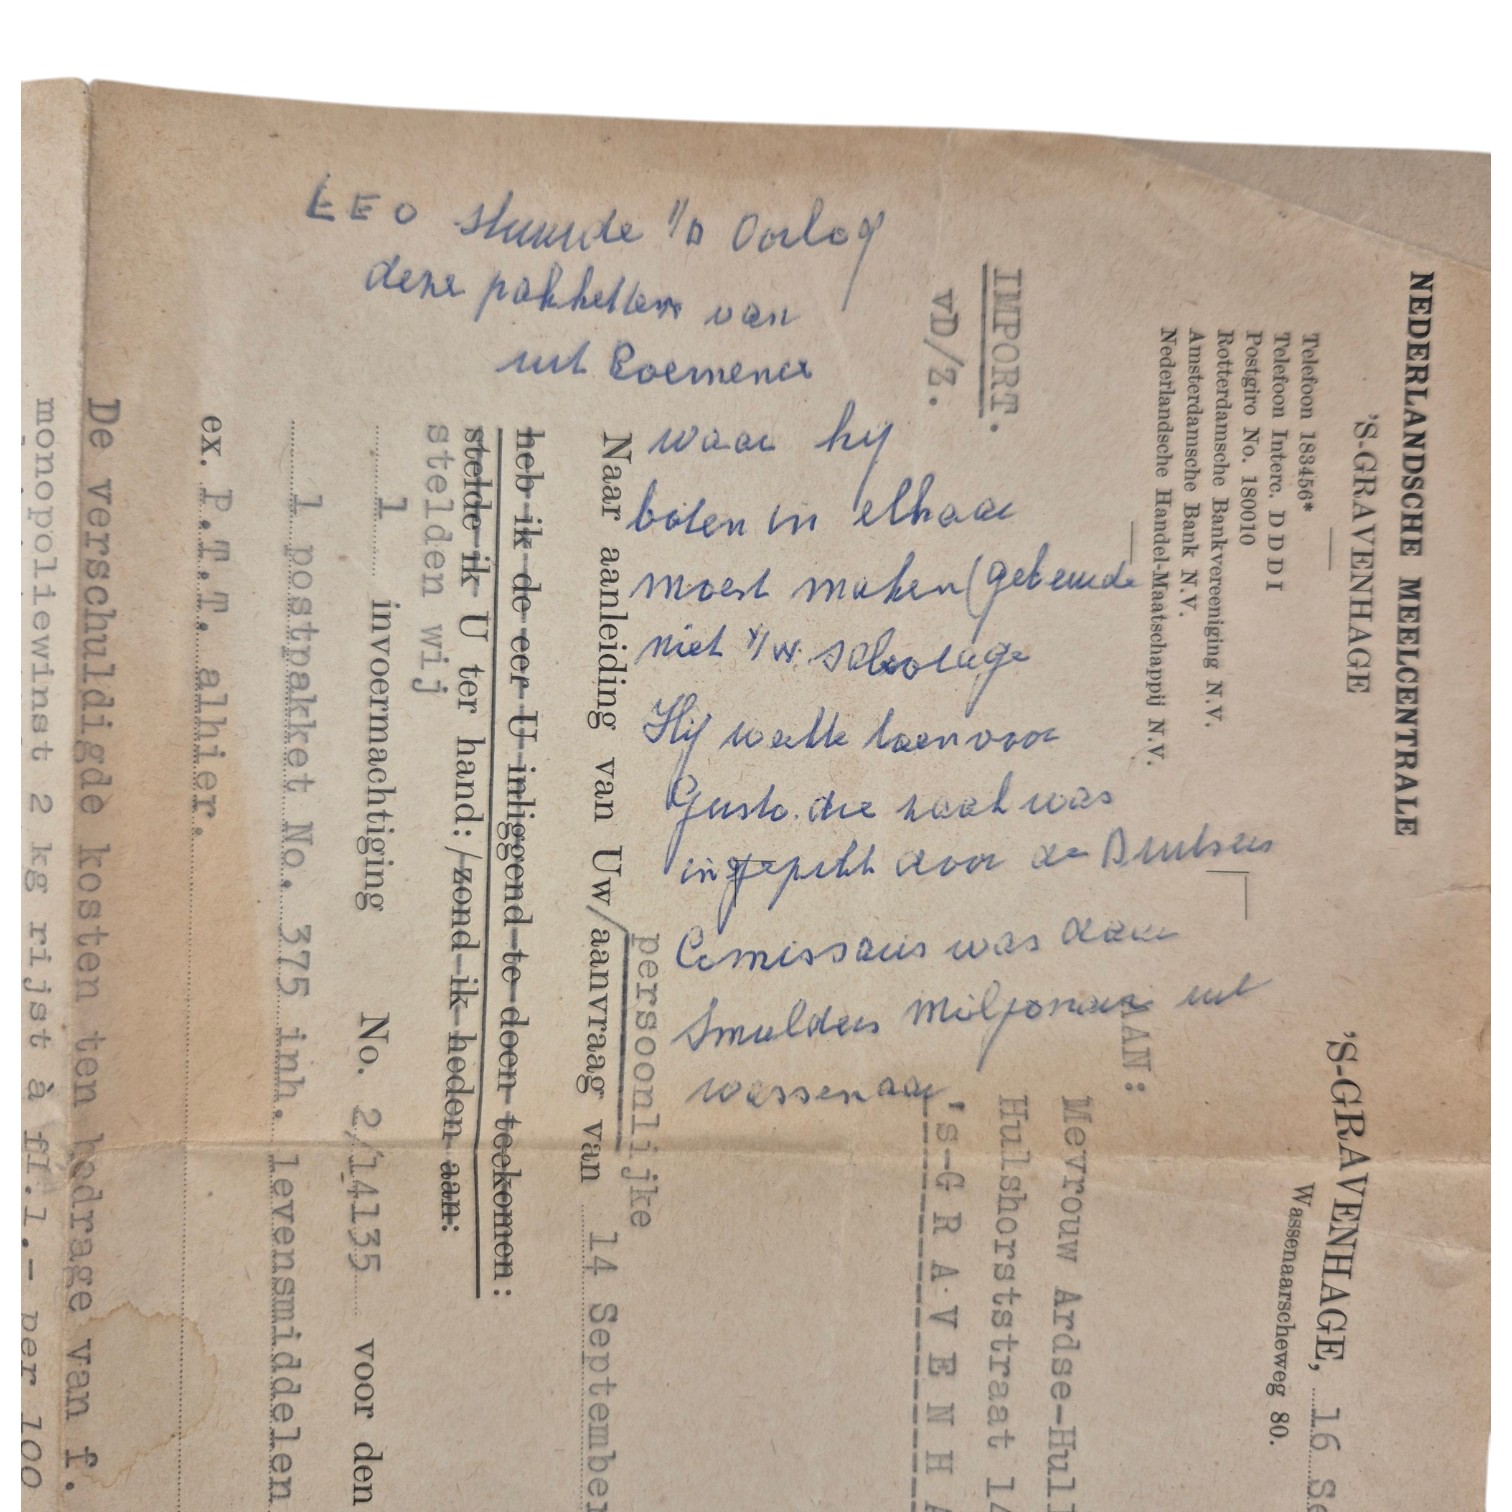 LEO stuurde i/d Oorlog
deze pakketten van
uit Roemenië
waar hij
boten in elkaar
moest maken (gebeurde
niet i/w. sabotage
Hij werkte toen voor
Gusto. die zaak was
ingepikt door de Duitsers
Comissaris was daar
Smulders Miljonair uit
wassenaar
NEDERLANDSCHE MEELCENTRALE
'S-GRAVENHAGE
Telefoon 183456*
Telefoon Interc. D D D I
Postgiro No. 180010
Rotterdamsche Bankvereeniging N.V.
Amsterdamsche Bank N.V.
Nederlandsche Handel-Maatschappij N.V.
'S-GRAVENHAGE, 16 Se
Wassenaarscheweg 80.
AAN:
Mevrouw Ardse-Hull
Hulshorststraat 14
's-G R A V E N H A
IMPORT.
vD/Z.
persoonlijke
Naar aanleiding van Uw/aanvraag van 14 September
heb ik de eer U inliggend te doen toekomen:
stelde ik U ter hand:/zond ik heden aan:
stelden wij
1 invoermachtiging No. 2/14135 voor den
1 postpakket No. 375 inh. levensmiddelen
ex. P.T.T. alhier.
De verschuldigde kosten ten bedrage van f.
monopoliewinst 2 kg rijst à fl.1.- per 100